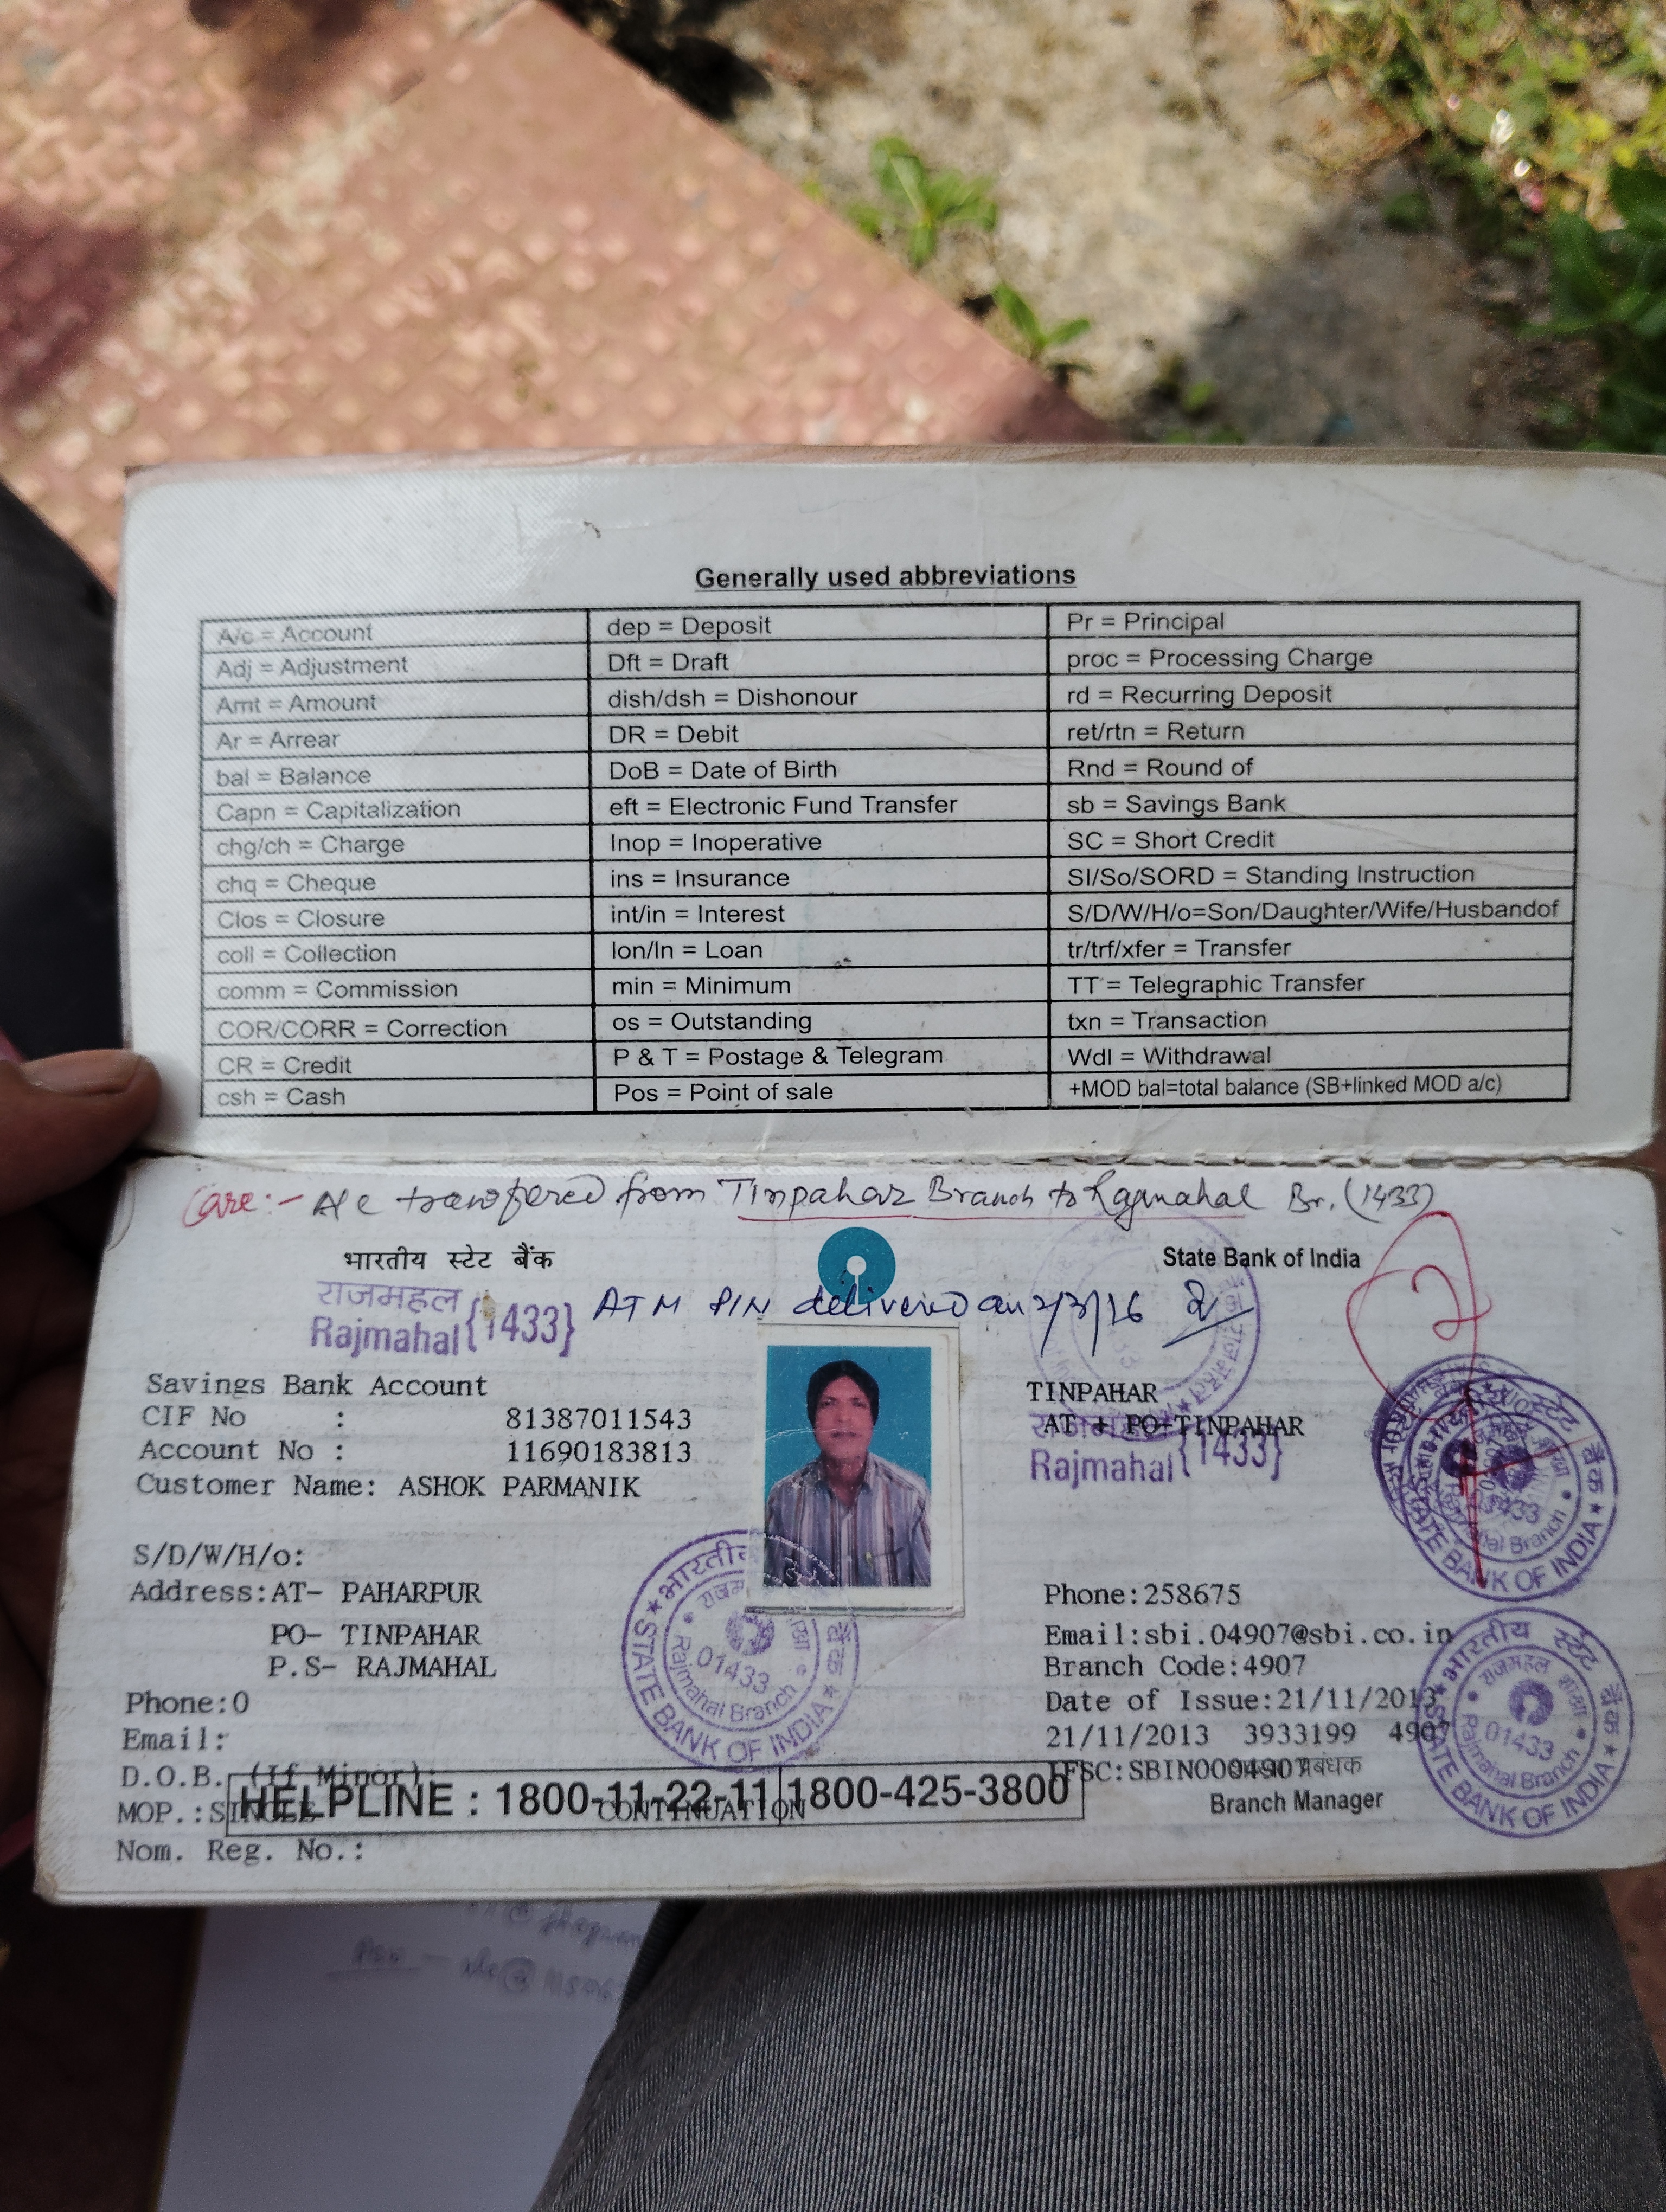 Generally used abbreviations
A/c = Account | dep = Deposit | Pr = Principal
Adj = Adjustment | Dft = Draft | proc = Processing Charge
Amt = Amount | dish/dsh = Dishonour | rd = Recurring Deposit
Ar = Arrear | DR = Debit | ret/rtn = Return
bal = Balance | DoB = Date of Birth | Rnd = Round of
Capn = Capitalization | eft = Electronic Fund Transfer | sb = Savings Bank
chg/ch = Charge | Inop = Inoperative | SC = Short Credit
chq = Cheque | ins = Insurance | SI/So/SORD = Standing Instruction
Clos = Closure | int/in = Interest | S/D/W/H/o=Son/Daughter/Wife/Husbandof
coll = Collection | lon/ln = Loan | tr/trf/xfer = Transfer
comm = Commission | min = Minimum | TT = Telegraphic Transfer
COR/CORR = Correction | os = Outstanding | txn = Transaction
CR = Credit | P & T = Postage & Telegram | Wdl = Withdrawal
csh = Cash | Pos = Point of sale | +MOD bal=total balance (SB+linked MOD a/c)
Care:- A/c transfered from Tinpahar Branch to Rajmahal Br. (1433)
भारतीय स्टेट बैंक State Bank of India
राजमहल
Rajmahal {1433} ATM PIN delivered on 2/3/16
Savings Bank Account TINPAHAR
CIF No : 81387011543 AT + PO-TINPAHAR
राजमहल
Account No : 11690183813 Rajmahal {1433}
Customer Name: ASHOK PARMANIK
S/D/W/H/o:
Address:AT- PAHARPUR Phone:258675
PO- TINPAHAR Email:sbi.04907@sbi.co.in
P.S- RAJMAHAL Branch Code:4907
Phone:0 Date of Issue:21/11/2013
Email: 21/11/2013 3933199 4907
D.O.B. (If Minor): IFSC:SBIN0004907
HELPLINE : 1800-11-22-11 1800-425-3800
MOP.:SINGLE CONTINUATION Branch Manager
Nom. Reg. No.:
भारतीय स्टेट बैंक
STATE BANK OF INDIA
राजमहल शाखा
01433
Rajmahal Branch